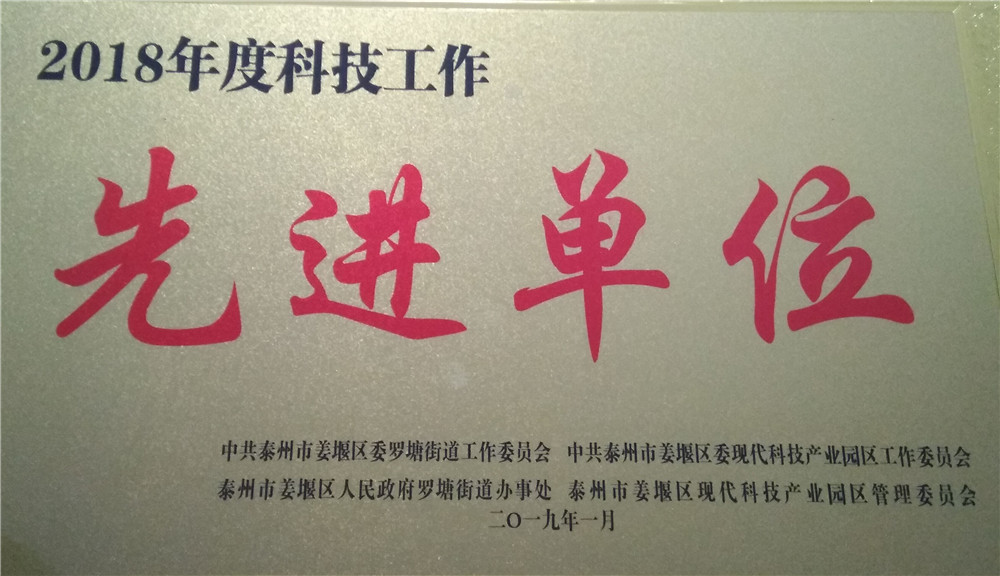 2018年度科技工作
先进单位
中共泰州市姜堰区委罗塘街道工作委员会 中共泰州市姜堰区委现代科技产业园区工作委员会
泰州市姜堰区人民政府罗塘街道办事处 泰州市姜堰区现代科技产业园区管理委员会
二〇一九年一月